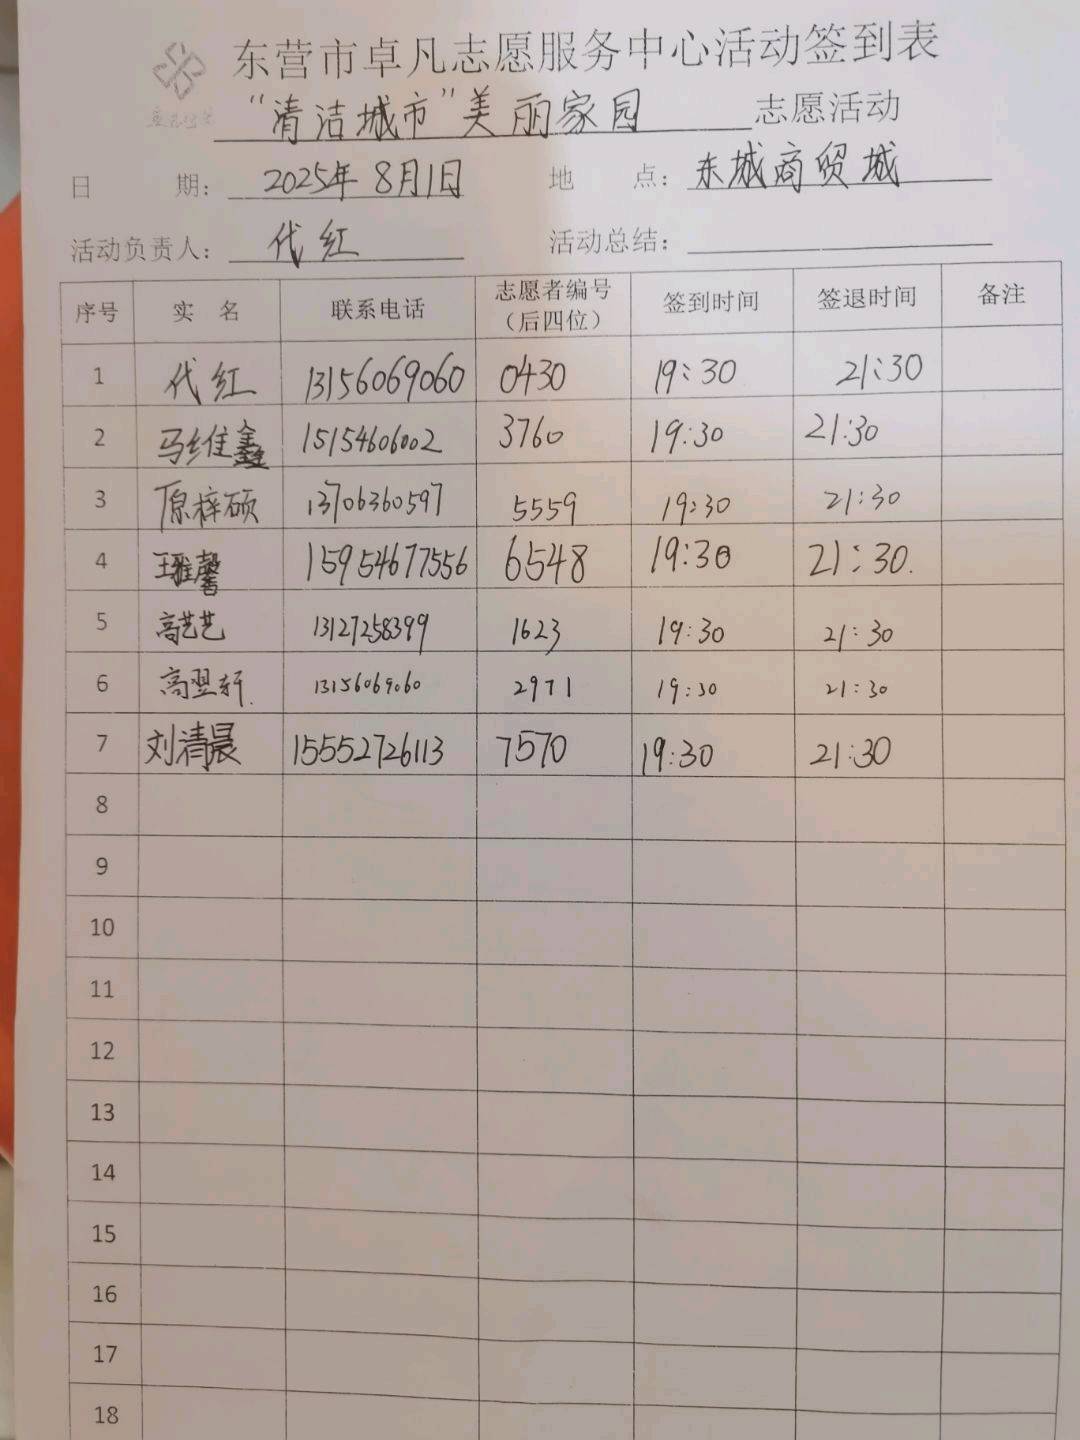 东营市卓凡志愿服务中心活动签到表
“清洁城市”美丽家园 志愿活动
日 期：2025年8月1日 地 点：东城商贸城
活动负责人：代红 活动总结：
序号 实 名 联系电话 志愿者编号（后四位） 签到时间 签退时间 备注
1 代红 13156069060 0430 19:30 21:30
2 马维鑫 15154606002 3760 19:30 21:30
3 原梓硕 13706360597 5559 19:30 21:30
4 王雅馨 15954677556 6548 19:30 21:30.
5 高艺艺 13127258399 1623 19:30 21:30
6 高翌轩. 13156069060 2971 19:30 21:30
7 刘清晨 15552726113 7570 19:30 21:30
8
9
10
11
12
13
14
15
16
17
18